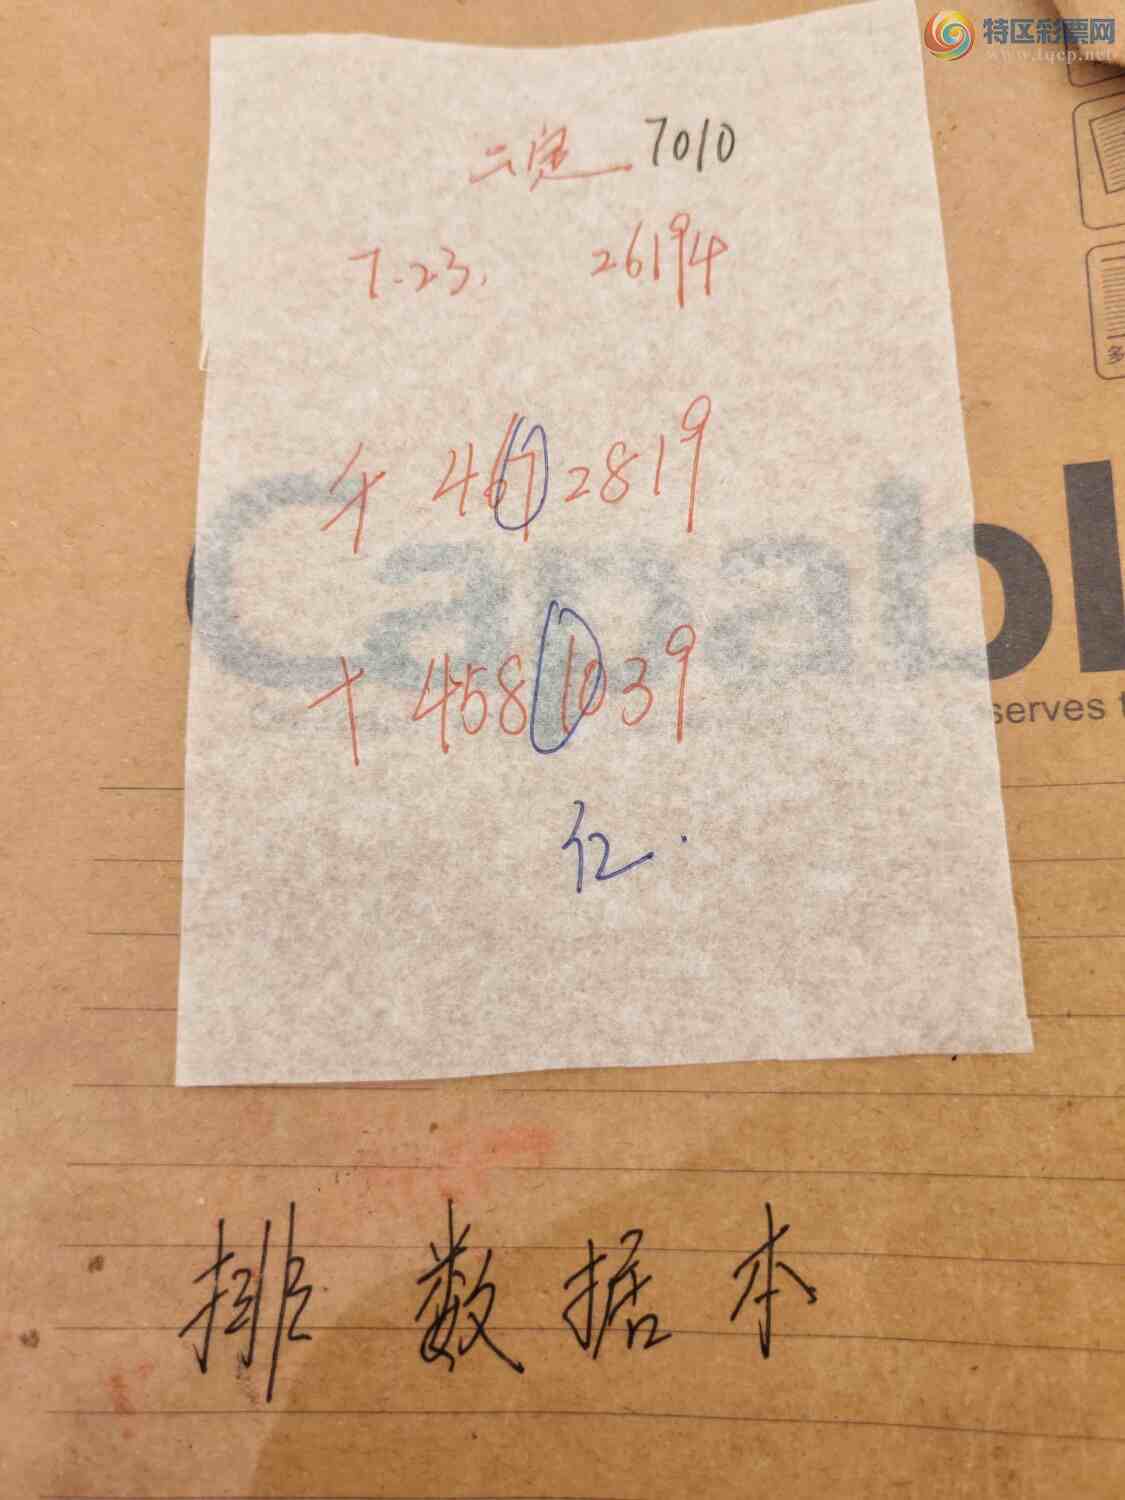 特区彩票网
www.tqcp.net
二定 7010
7.23. 26194
千 4672819
十 4581039
亿.
Canabl
serves t
多
排数据本